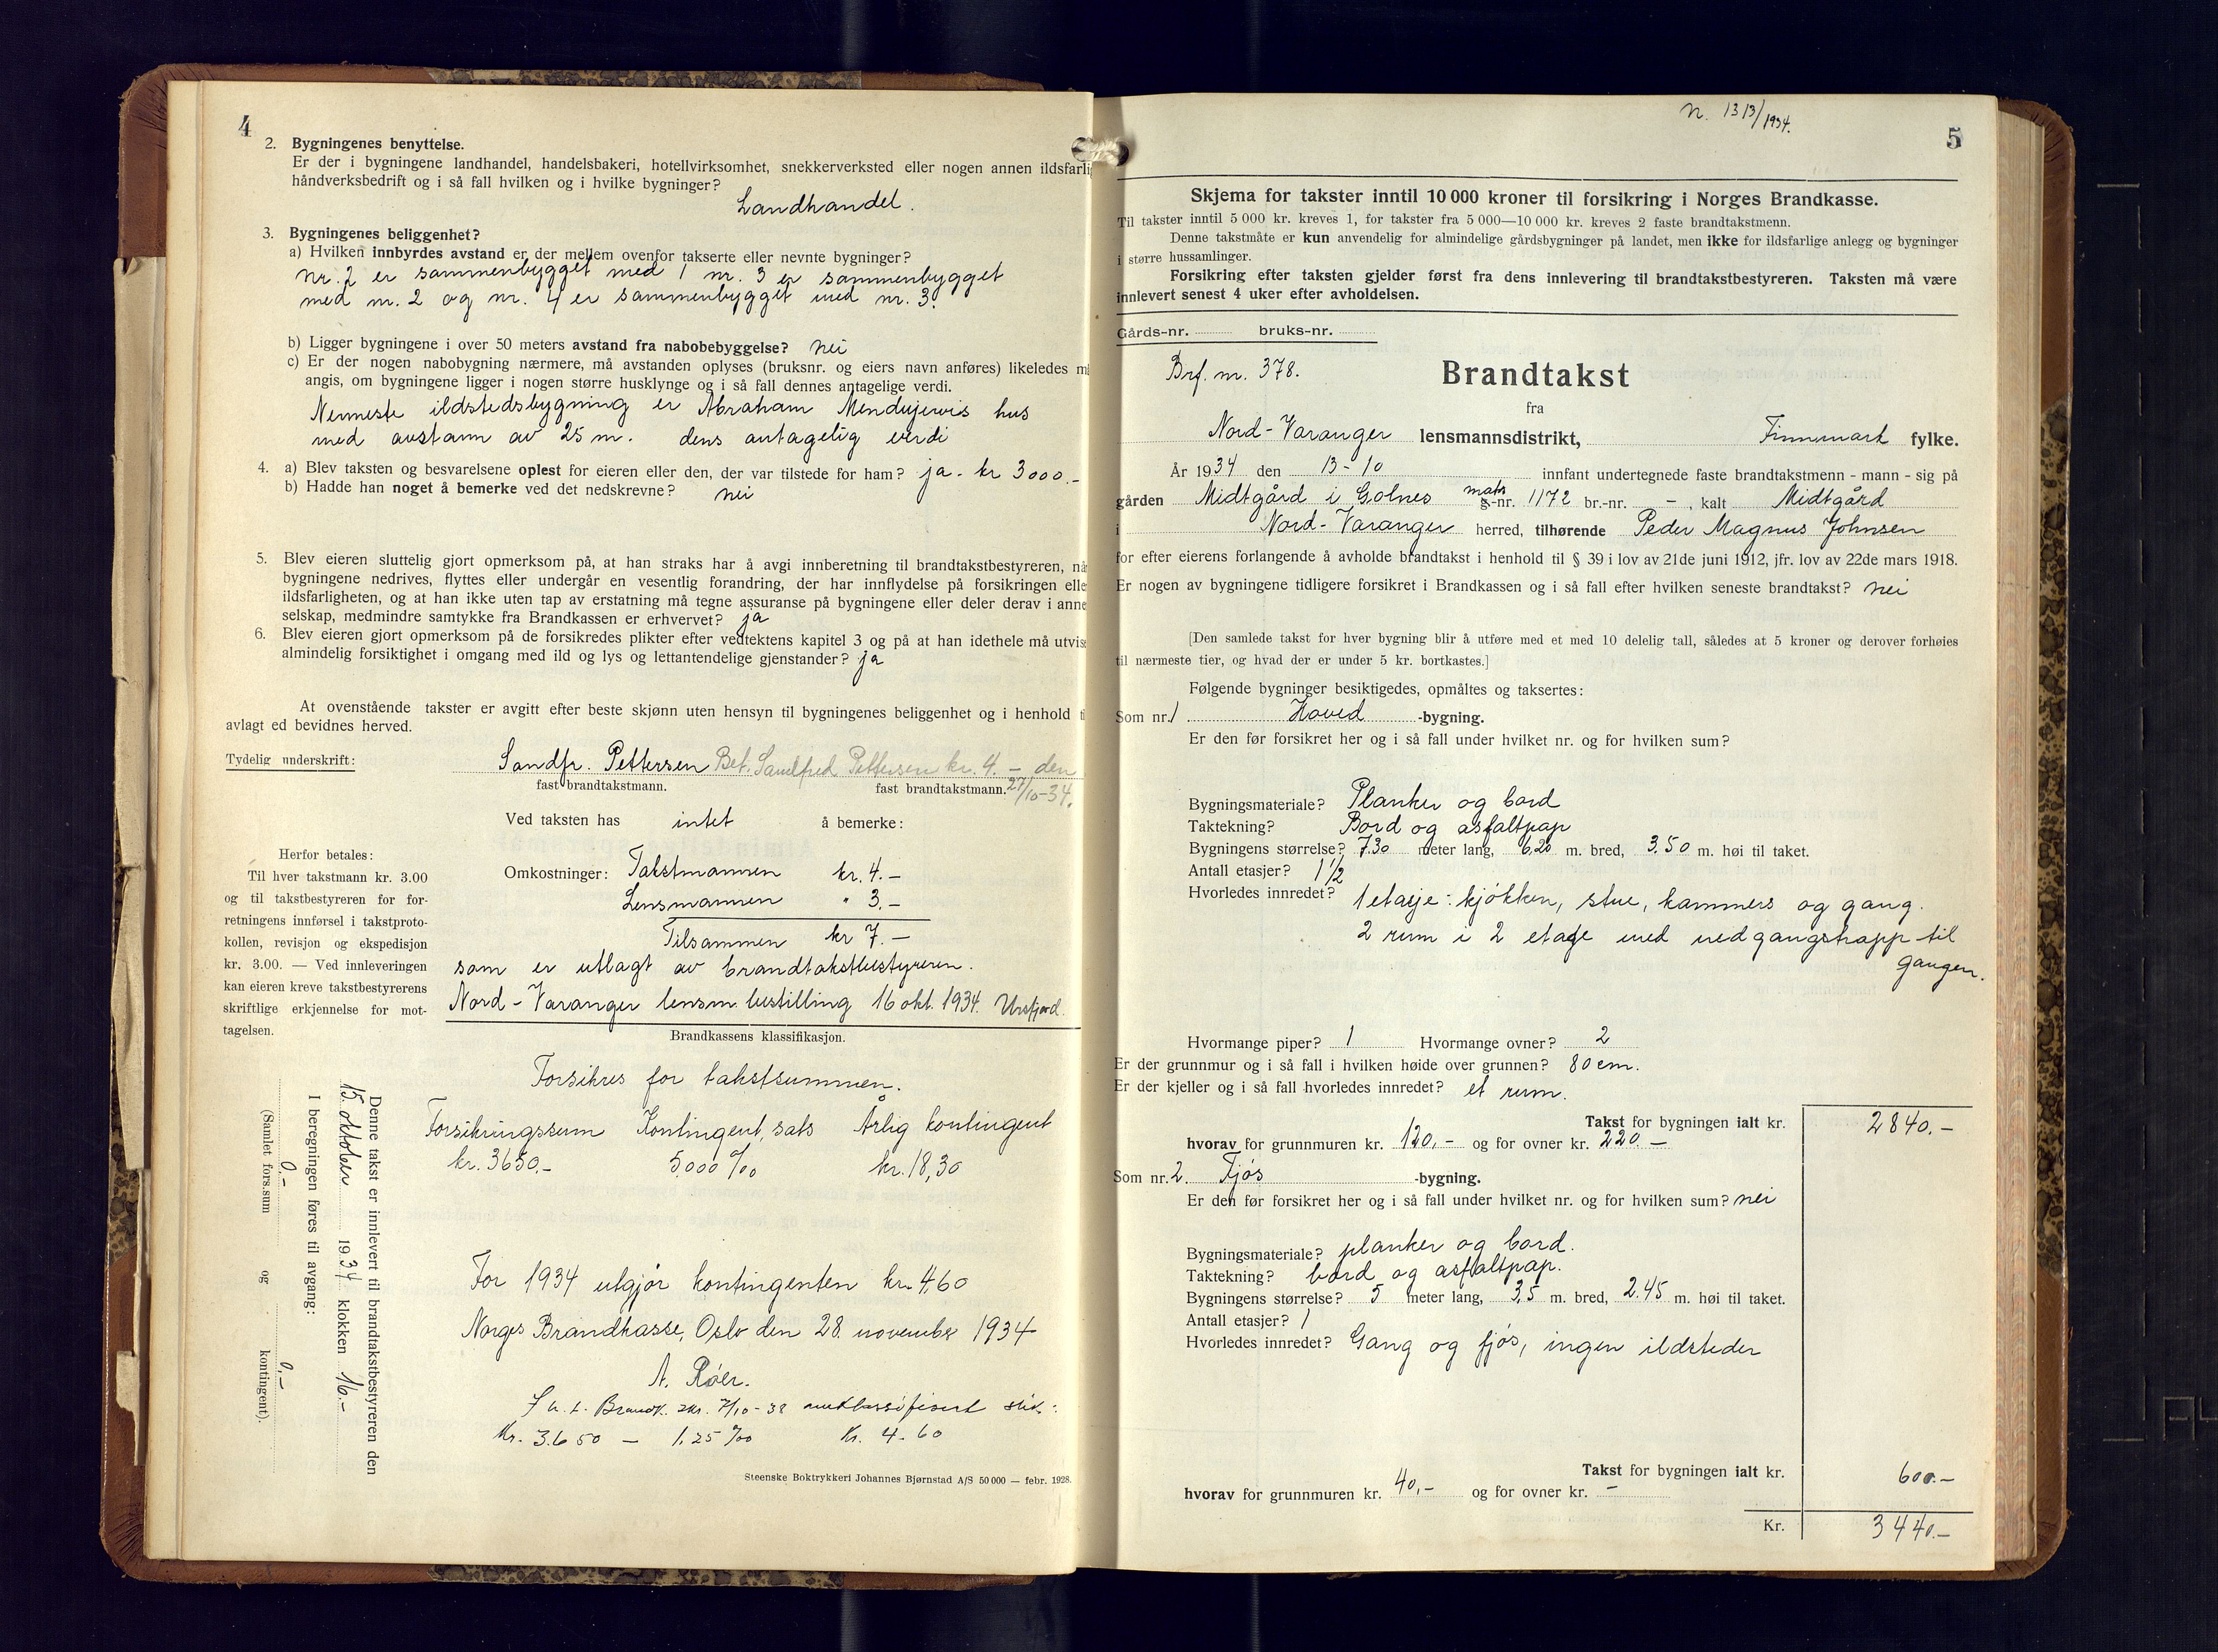 4
2. Bygningenes benyttelse.
Er der i bygningene landhandel, handelsbakeri, hotellvirksomhet, snekkerverksted eller nogen annen ildsfarli
håndverksbedrift og i så fall hvilken og i hvilke bygninger?
Landhandel.
3. Bygningenes beliggenhet?
a) Hvilken innbyrdes avstand er der mellem ovenfor takserte eller nevnte bygninger?
nr. 2 er sammenbygget med 1 nr. 3 er sammenbygget
med nr. 2 og nr. 4 er sammenbygget med nr. 3.
b) Ligger bygningene i over 50 meters avstand fra nabobebyggelse? nei
c) Er der nogen nabobygning nærmere, må avstanden oplyses (bruksnr. og eiers navn anføres) likeledes må
angis, om bygningene ligger i nogen større husklynge og i så fall dennes antagelige verdi.
Nermeste ildstedsbygning er Abraham Mendujervis hus
med avstann av 25 m. dens antagelig verdi
4. a) Blev taksten og besvarelsene oplest for eieren eller den, der var tilstede for ham? ja - kr 3000.-
b) Hadde han noget å bemerke ved det nedskrevne? nei
5. Blev eieren sluttelig gjort opmerksom på, at han straks har å avgi innberetning til brandtakstbestyreren, når
bygningene nedrives, flyttes eller undergår en vesentlig forandring, der har innflydelse på forsikringen elle
ildsfarligheten, og at han ikke uten tap av erstatning må tegne assuranse på bygningene eller deler derav i anne
selskap, medmindre samtykke fra Brandkassen er erhvervet? ja
6. Blev eieren gjort opmerksom på de forsikredes plikter efter vedtektens kapitel 3 og på at han idethele må utvise
almindelig forsiktighet i omgang med ild og lys og lettantendelige gjenstander? ja
At ovenstående takster er avgitt efter beste skjønn uten hensyn til bygningenes beliggenhet og i henhold ti
avlagt ed bevidnes herved.
Tydelig underskrift:
Sandfr. Pettersen Bet. Sandfred Pettersen kr. 4. - den
fast brandtakstmann. fast brandtakstmann. 27/10-34.
Ved taksten has intet å bemerke:
Omkostninger: Takstmannen kr. 4.-
Lensmannen " 3.-
Tilsammen kr 7.-
som er utlagt av brandtakstbestyreren.
Nord-Varanger lensm.bestilling 16 okt. 1934. Ursfjord.
Herfor betales:
Til hver takstmann kr. 3.00
og til takstbestyreren for for-
retningens innførsel i takstproto-
kollen, revisjon og ekspedisjon
kr. 3.00. — Ved innleveringen
kan eieren kreve takstbestyrerens
skriftlige erkjennelse for mot-
tagelsen.
Brandkassens klassifikasjon.
Forsikres for takstsummen.
Forsikringssum Kontingent,sats Årlig kontingent
kr. 3650.- 5.000 ‰ kr. 18,30
For 1934 utgjør kontingenten kr. 4,60
Norges Brandkasse, Oslo den 28. november 1934
A. Röer.
Brandk. skr. 7/10-38 omklassifisert slik:
Kr. 3.650 — 1.25 ‰ Kr. 4.60
Denne takst er innlevert til brandtakstbestyreren den
15. oktober 1934 klokken 16.-
I beregningen føres til avgang:
0.- 0.-
(Samlet fors.sum og kontingent).
Steenske Boktrykkeri Johannes Bjørnstad A/S 50 000 — febr. 1928.
N. 1313/1934.
5
Skjema for takster inntil 10 000 kroner til forsikring i Norges Brandkasse.
Til takster inntil 5 000 kr. kreves 1, for takster fra 5 000—10 000 kr. kreves 2 faste brandtakstmenn.
Denne takstmåte er kun anvendelig for almindelige gårdsbygninger på landet, men ikke for ildsfarlige anlegg og bygninger
i større hussamlinger.
Forsikring efter taksten gjelder først fra dens innlevering til brandtakstbestyreren. Taksten må være
innlevert senest 4 uker efter avholdelsen.
Gårds-nr. bruks-nr.
Brf. nr. 378.
Brandtakst
fra
Nord-Varanger lensmannsdistrikt, Finnmark fylke.
År 1934 den 13-10 innfant undertegnede faste brandtakstmenn - mann - sig på
gården Midtgård i Golnes matr g-nr. 1172 br.-nr. -, kalt Midtgård
i Nord-Varanger herred, tilhørende Peder Magnus Johnsen
for efter eierens forlangende å avholde brandtakst i henhold til § 39 i lov av 21de juni 1912, jfr. lov av 22de mars 1918.
Er nogen av bygningene tidligere forsikret i Brandkassen og i så fall efter hvilken seneste brandtakst? nei
[Den samlede takst for hver bygning blir å utføre med et med 10 delelig tall, således at 5 kroner og derover forhøies
til nærmeste tier, og hvad der er under 5 kr. bortkastes.]
Følgende bygninger besiktigedes, opmåltes og taksertes:
Som nr. 1 Hoved -bygning.
Er den før forsikret her og i så fall under hvilket nr. og for hvilken sum?
Bygningsmateriale? Planker og bord
Taktekning? Bord og asfaltpap
Bygningens størrelse? 7.30 meter lang, 6,20 m. bred, 3.50 m. høi til taket.
Antall etasjer? 1 1/2
Hvorledes innredet? 1 etasje: kjøkken, stue, kammers og gang.
2 rum i 2 etage med nedgangstrapp til
gangen.
Hvormange piper? 1 Hvormange ovner? 2
Er der grunnmur og i så fall i hvilken høide over grunnen? 80 cm.
Er der kjeller og i så fall hvorledes innredet? et rum.
Takst for bygningen ialt kr. 2840.-
hvorav for grunnmuren kr. 120,- og for ovner kr. 220.-
Som nr. 2. Fjøs -bygning.
Er den før forsikret her og i så fall under hvilket nr. og for hvilken sum? nei
Bygningsmateriale? planker og bord.
Taktekning? bord og asfaltpap.
Bygningens størrelse? 5 meter lang, 3,5 m. bred, 2.45 m. høi til taket.
Antall etasjer? 1
Hvorledes innredet? Gang og fjøs, ingen ildsteder
Takst for bygningen ialt kr. 600.-
hvorav for grunnmuren kr. 40,- og for ovner kr. -
Kr. 3440.-